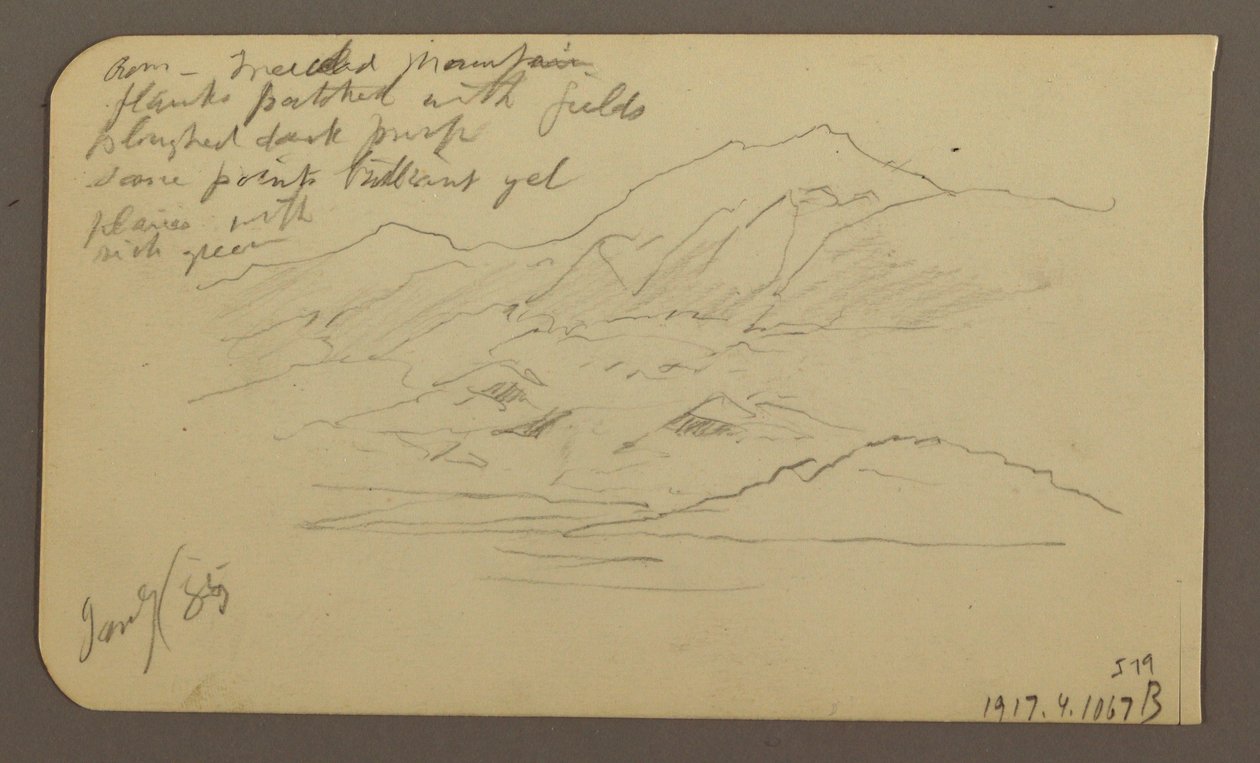 mountain
flanks patched with fields
ploughed dark purp
some points brilliant yel
plains with
rich green
Jany/85
579
1917.4.1067B